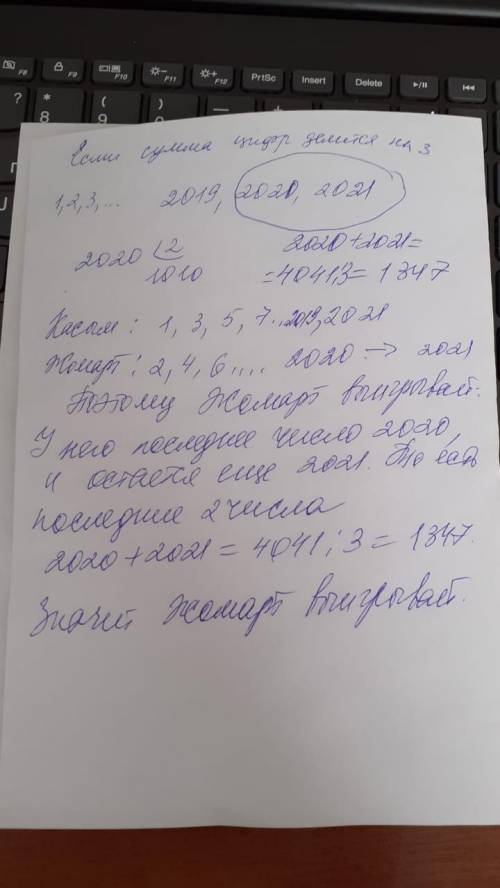 F8 F9 F10 F11 F12 PrtSc Insert Delete
? * 8 ( 9 )
Если сумма цифр делится на 3
1, 2, 3, ... 2019, 2020, 2021
2020 2 2020+2021=
1010 =4041:3= 1347
Касым: 1, 3, 5, 7..2019, 2021
Жомарт: 2, 4, 6.... 2020 → 2021
Поэтому Жомарт выигрывает.
У него последнее число 2020,
и остается еще 2021. То есть
последние 2 числа
2020+2021 = 4041 : 3 = 1347.
Значит Жомарт выигрывает.